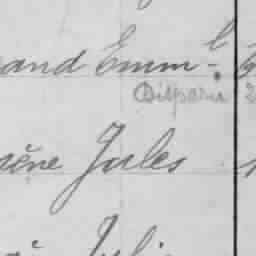 and Emm.l
Disparu 2
ène Jules
Juli